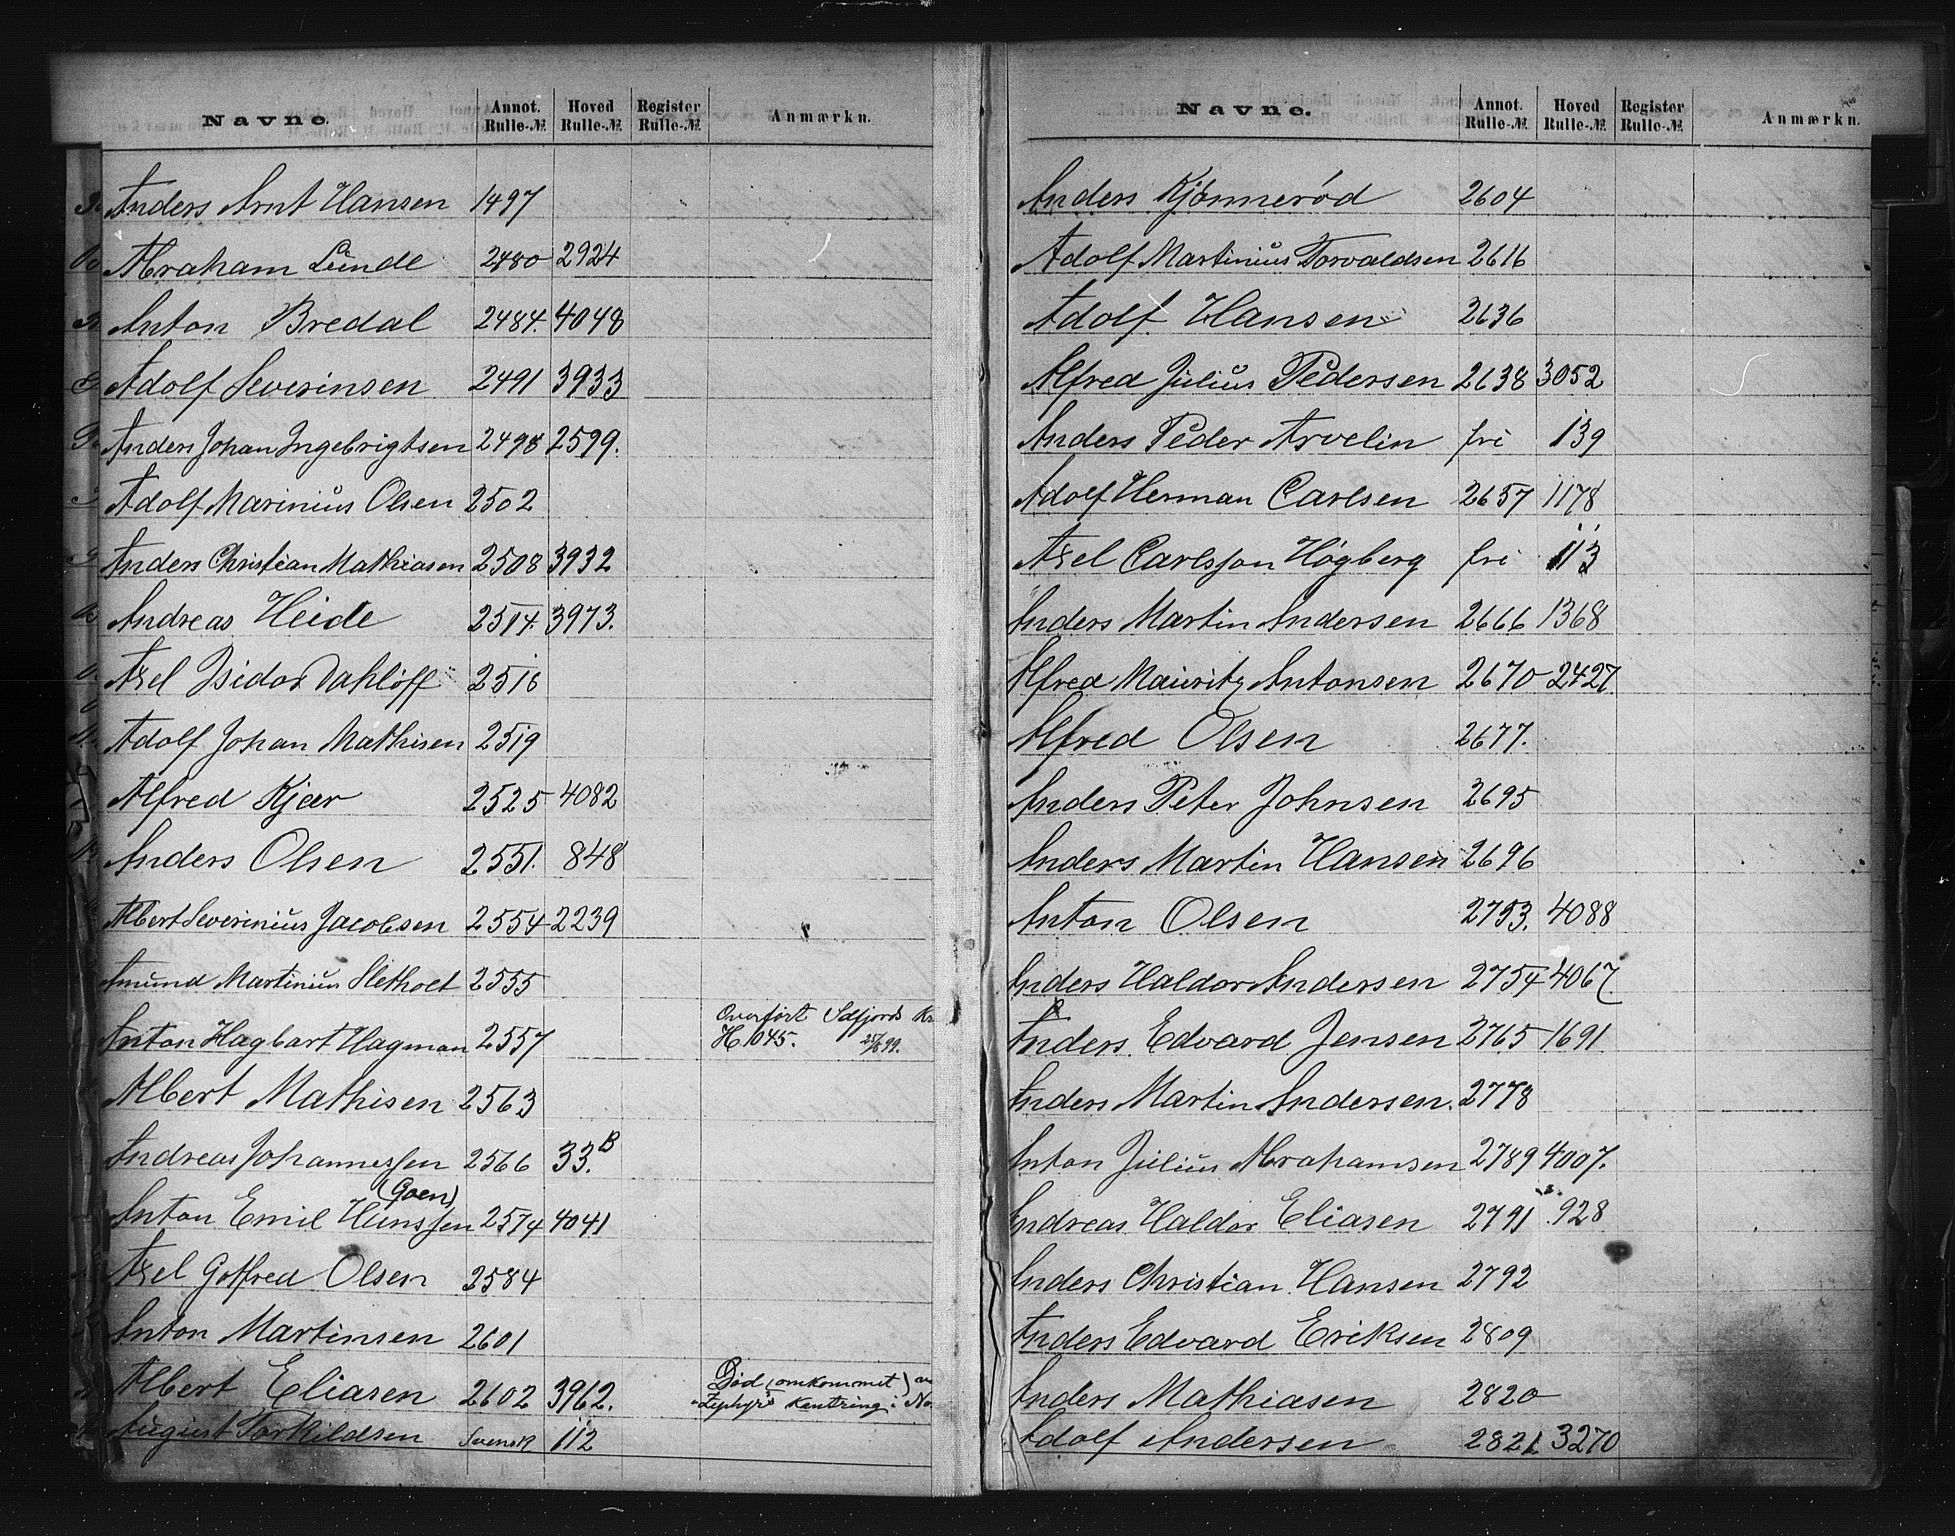 Navne. Annot. Rulle-№ Hoved Rulle-№ Register Rulle-№ Anmærkn.
Anders Arnt Hansen 1497
Abraham Lunde 2480 2924
Anton Bredal 2484. 4048
Adolf Severinsen 2491 3933
Anders Johan Ingebrigtsen 2498 2599.
Adolf Marinius Olsen 2502
Anders Christian Mathiasen 2508 3932
Andreas Heide 2514. 3973.
Axel Isidor Dahlöff 2516
Adolf Johan Mathisen 2519
Alfred Kjær 2525 4082
Anders Olsen 2551. 848
Albert Severinius Jacobsen 2554 2239
Amund Martinius Sletholt 2555
Anton Hagbart Hagman 2557 Overført Idfjords Kr H 1045.
Albert Mathisen 2563
Andreas Johannesen 2566 33.B
(Goen)
Anton Emil Hanssen 2574 4041
Axel Gotfred Olsen 2584
Anton Martinsen 2601
Albert Eliasen 2602 3962. Død (omkommet) "Zephyr's" Kentring i No
August Torkildsen Svensk 112
Navne. Annot. Rulle-№ Hoved Rulle-№ Register Rulle-№ Anmærkn.
Anders Kjønnerød 2604
Adolf Martinius Torvaldsen 2616
Adolf Hansen 2636
Alfred Julius Pedersen 2638 3052
Anders Peder Arvelin fri 139
Adolf Herman Carlsen 2657 1178
Axel Carlsson Högberg fri 113
Anders Martin Andersen 2666 1368
Alfred Mauritz Antonsen 2670 2427.
Alfred Olsen 2677.
Anders Peter Johnsen 2695
Anders Martin Hansen 2696
Anton Olsen 2753. 4088
Anders Haldor Andersen 2754 4067.
Anders Edvard Jensen 2765 1691.
Anders Martin Andersen. 2778
Anton Julius Abrahamsen 2789 4007.
Andreas Haldor Eliasen 2791 928
Anders Christian Hansen 2792
Anders Edvard Eriksen 2809
Anders Mathiasen 2820
Adolf Andersen 2821. 3270